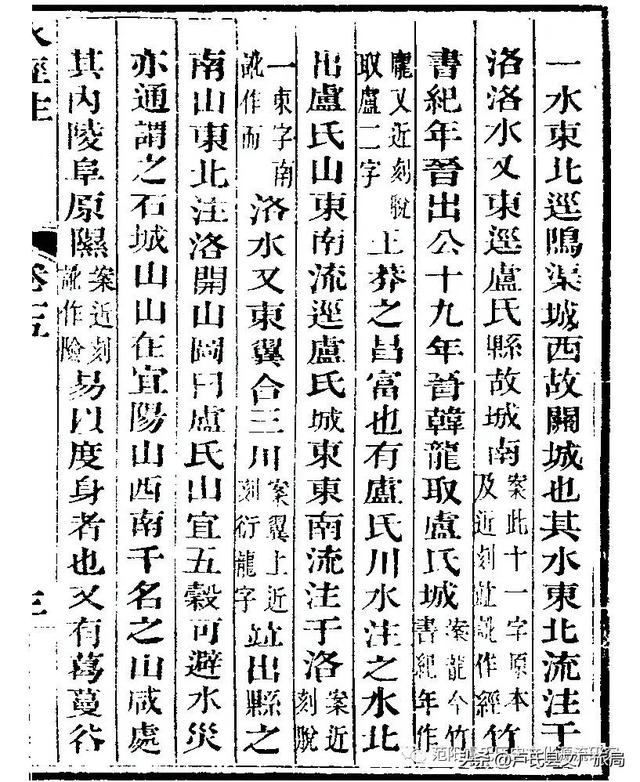 一水東北逕鵙渠城西故關城也其水東北流注于
洛洛水又東逕盧氏縣故城南案此十一字原本及近刻竝訛作經竹
書紀年晉出公十九年晉韓龍取盧氏城案龍今竹書紀年作
龎又近刻脫取盧二字王莽之昌富也有盧氏川水注之水北
出盧氏山東南流逕盧氏城東東南流注于洛案近刻脫
一東字南訛作而洛水又東翼合三川案翼上近刻衍龍字竝出縣之
南山東北注洛開山圖曰盧氏山宜五穀可避水災
亦通謂之石城山山在宜陽山西南千名之山咸處
其內陵阜原隰案近刻訛作險易以度身者也又有葛蔓谷
水經注 卷十五 三
头条@卢氏县文广旅局